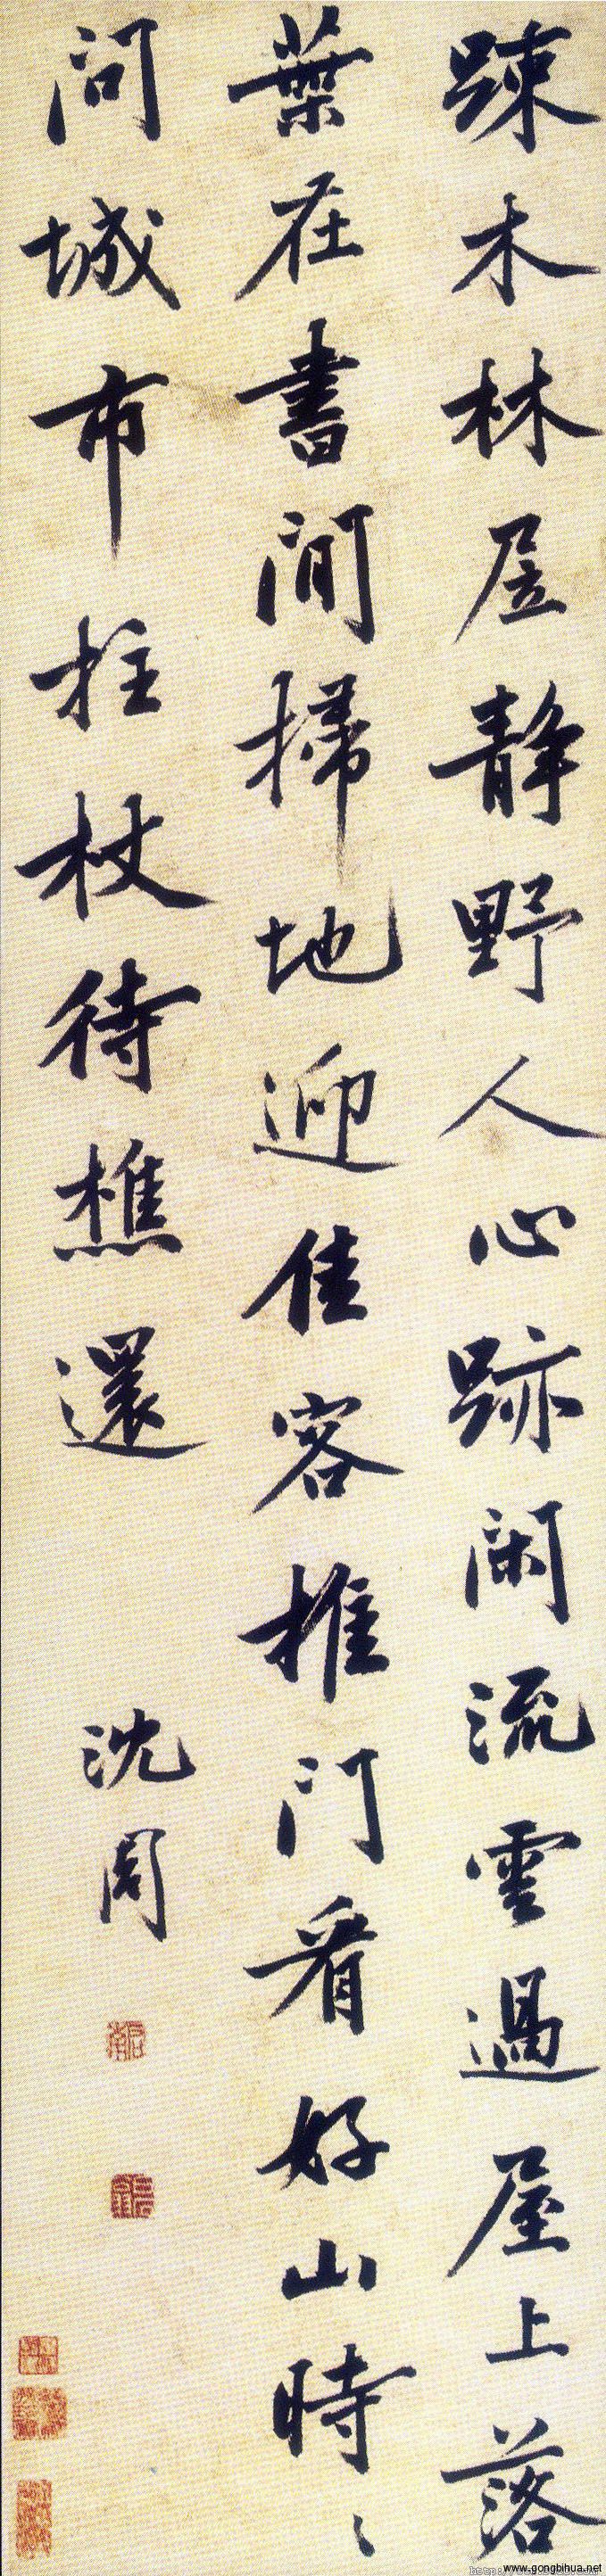 踈木林居静野人心跡閑流雲過屋上落
葉在書間掃地迎佳客推門看好山時〻
問城市拄杖待樵還
沈周
www.gongbihua.net